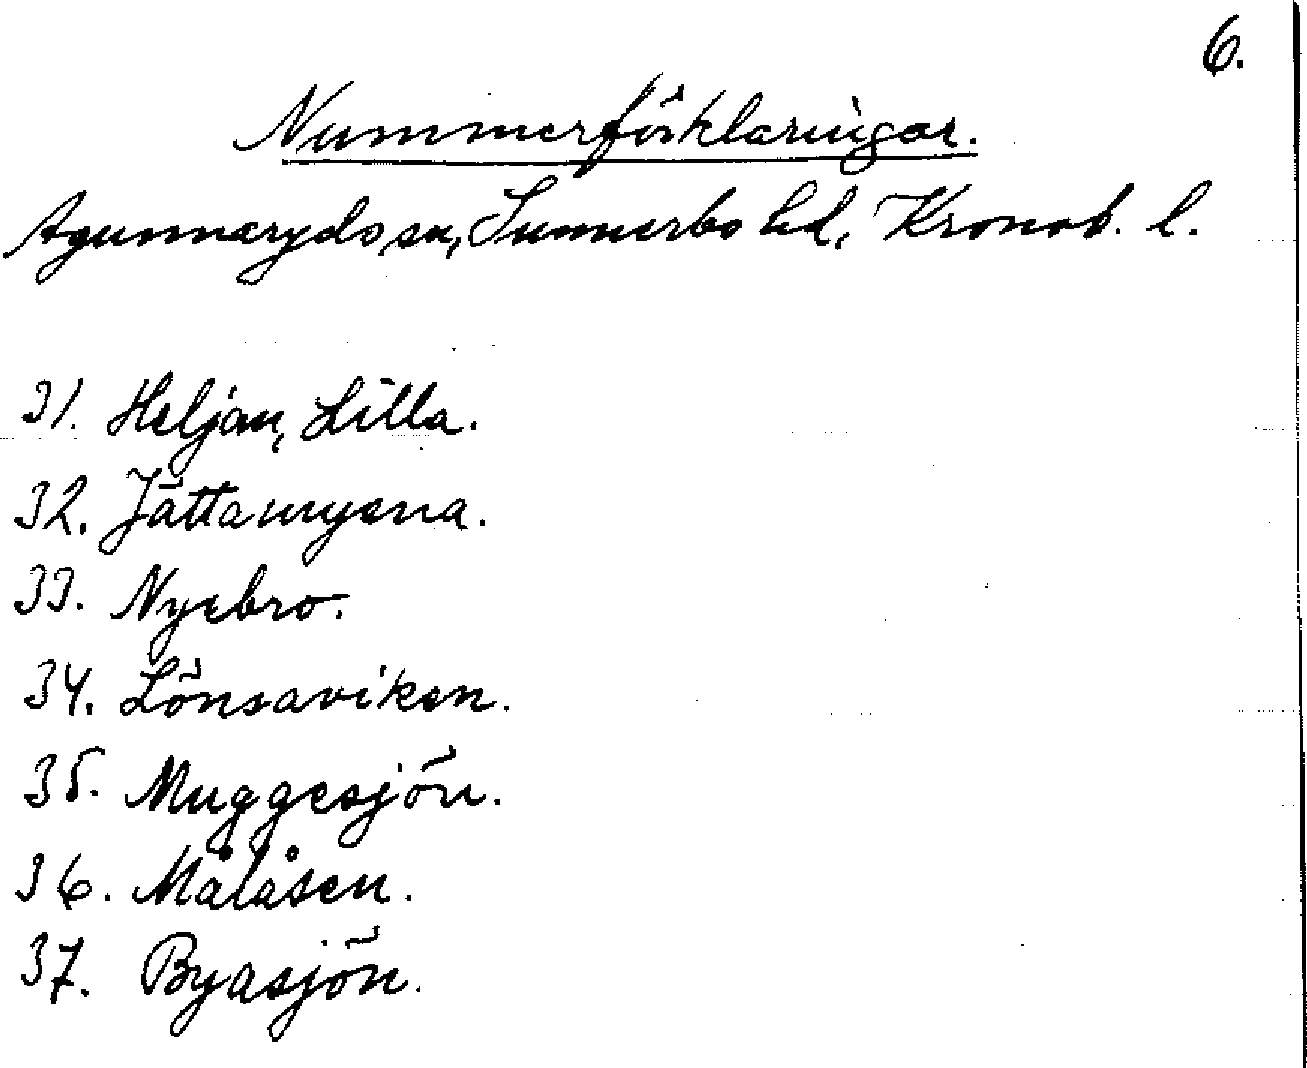 6.
Nummerförklaringar.
Agunnaryds sn, Sunnerbo hd, Kronob. l.
31. Heljan, Lilla.
32. Jättamyena.
33. Nyebro.
34. Lönsaviken.
35. Muggesjön.
36. Målåsen.
37. Byasjön.